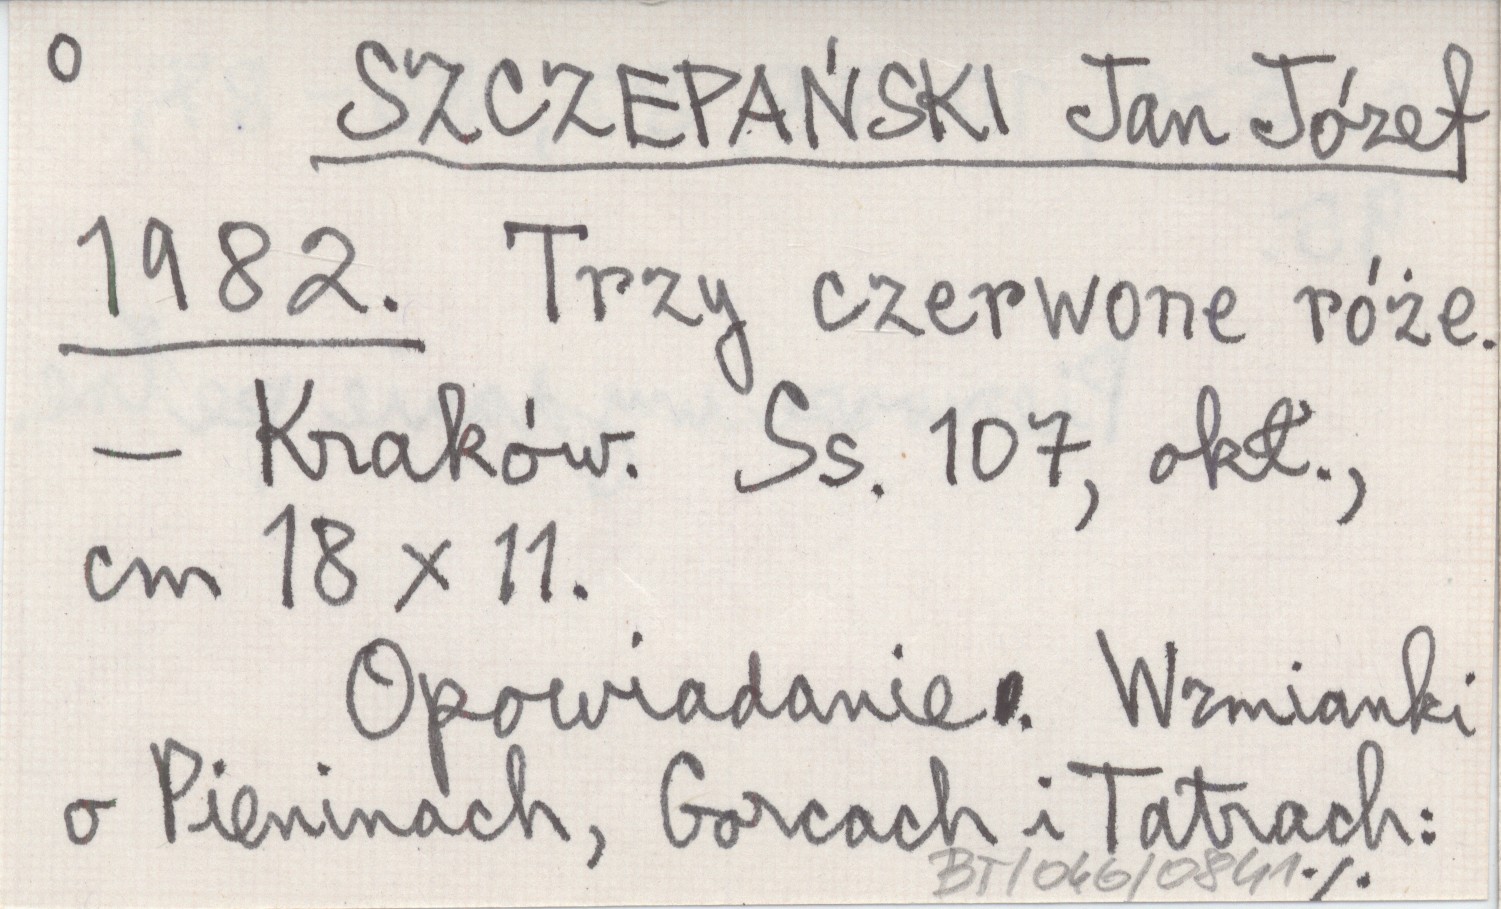 o SZCZEPAŃSKI Jan Józef
1982. Trzy czerwone róże.
— Kraków. Ss. 107, okł.,
cm 18 x 11.
Opowiadanie. Wzmianki
o Pieninach, Gorcach i Tatrach:
BT/046/0841 ./.